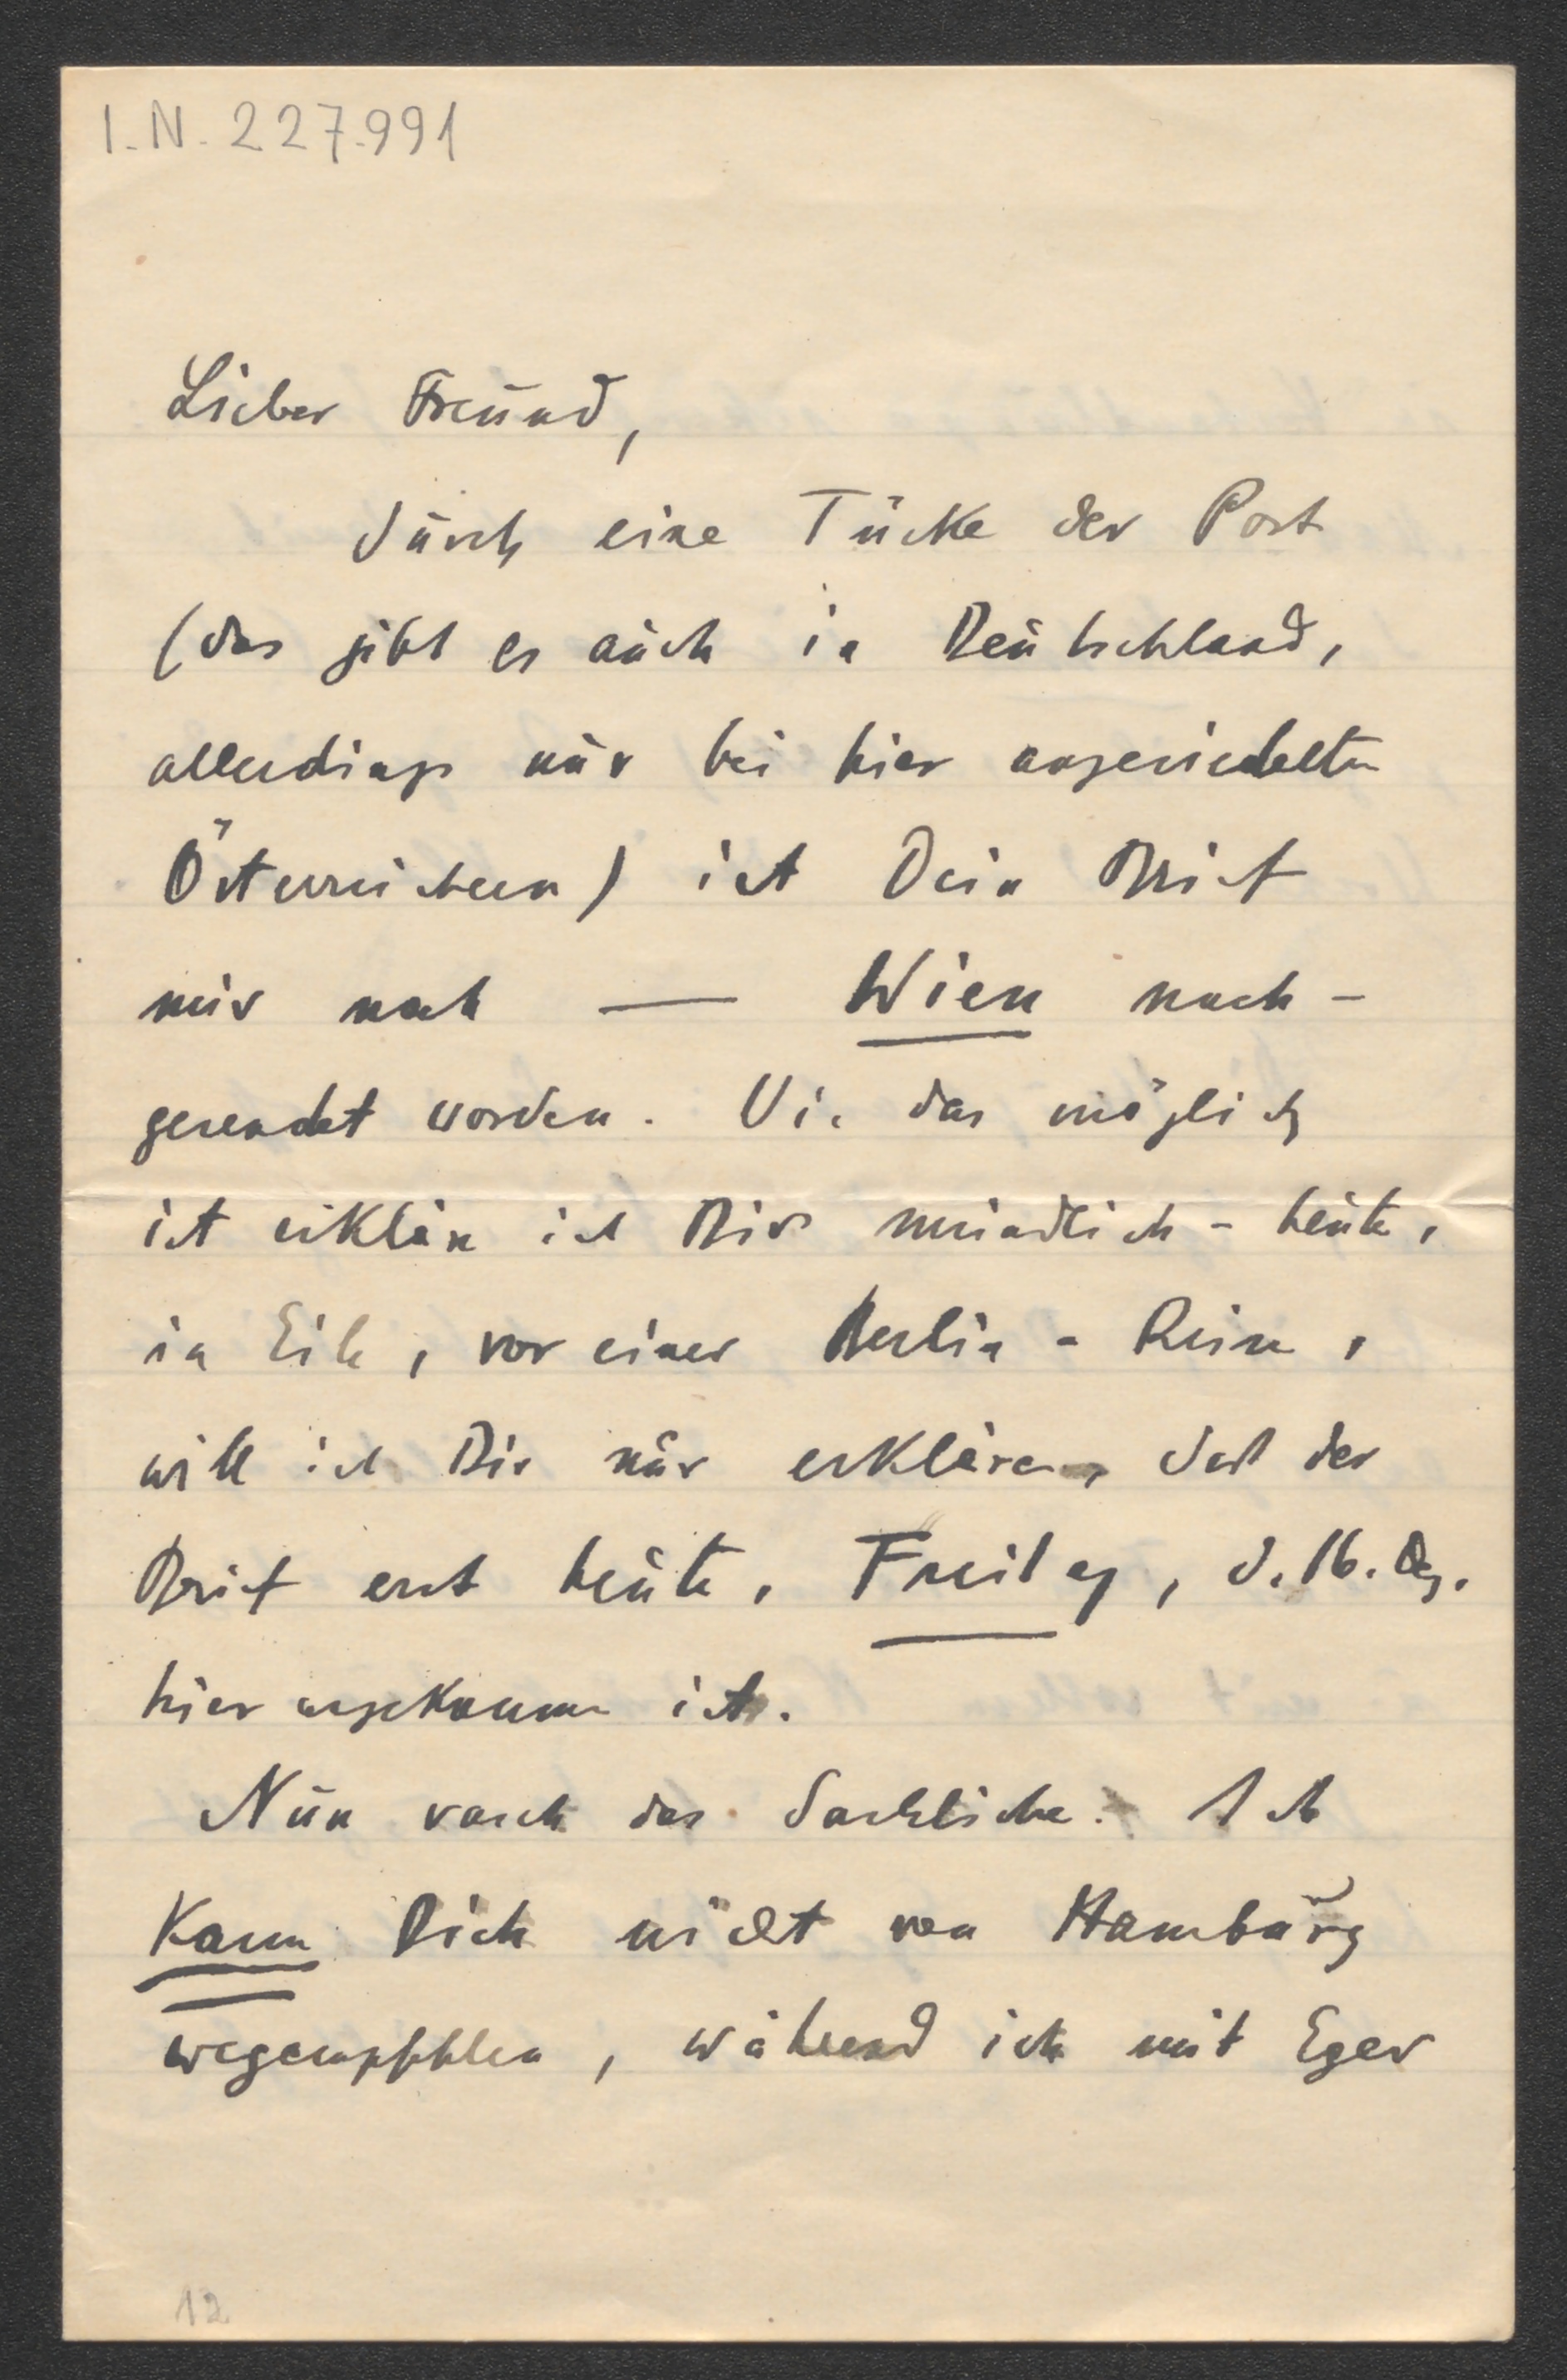 I.N. 227.991
Lieber Freund,
durch eine Tücke der Post
(das gibt es auch in Deutschland,
allerdings nur bei hier angesiedelten
Österreichern) ist Dein Brief
mir nach — Wien nach-
gesendet worden. Wie das möglich
ist erkläre ich Dir mündlich - heute,
in Eile, vor einer Berlin - Reise,
will ich Dir nur erklären, daß der
Brief erst heute, Freitag, d. 16. Dez.
hier angekommen ist.
Nun rasch das Sachliche. Ich
kann Dich nicht von Hamburg
wegempfehlen, während ich mit Eger
12